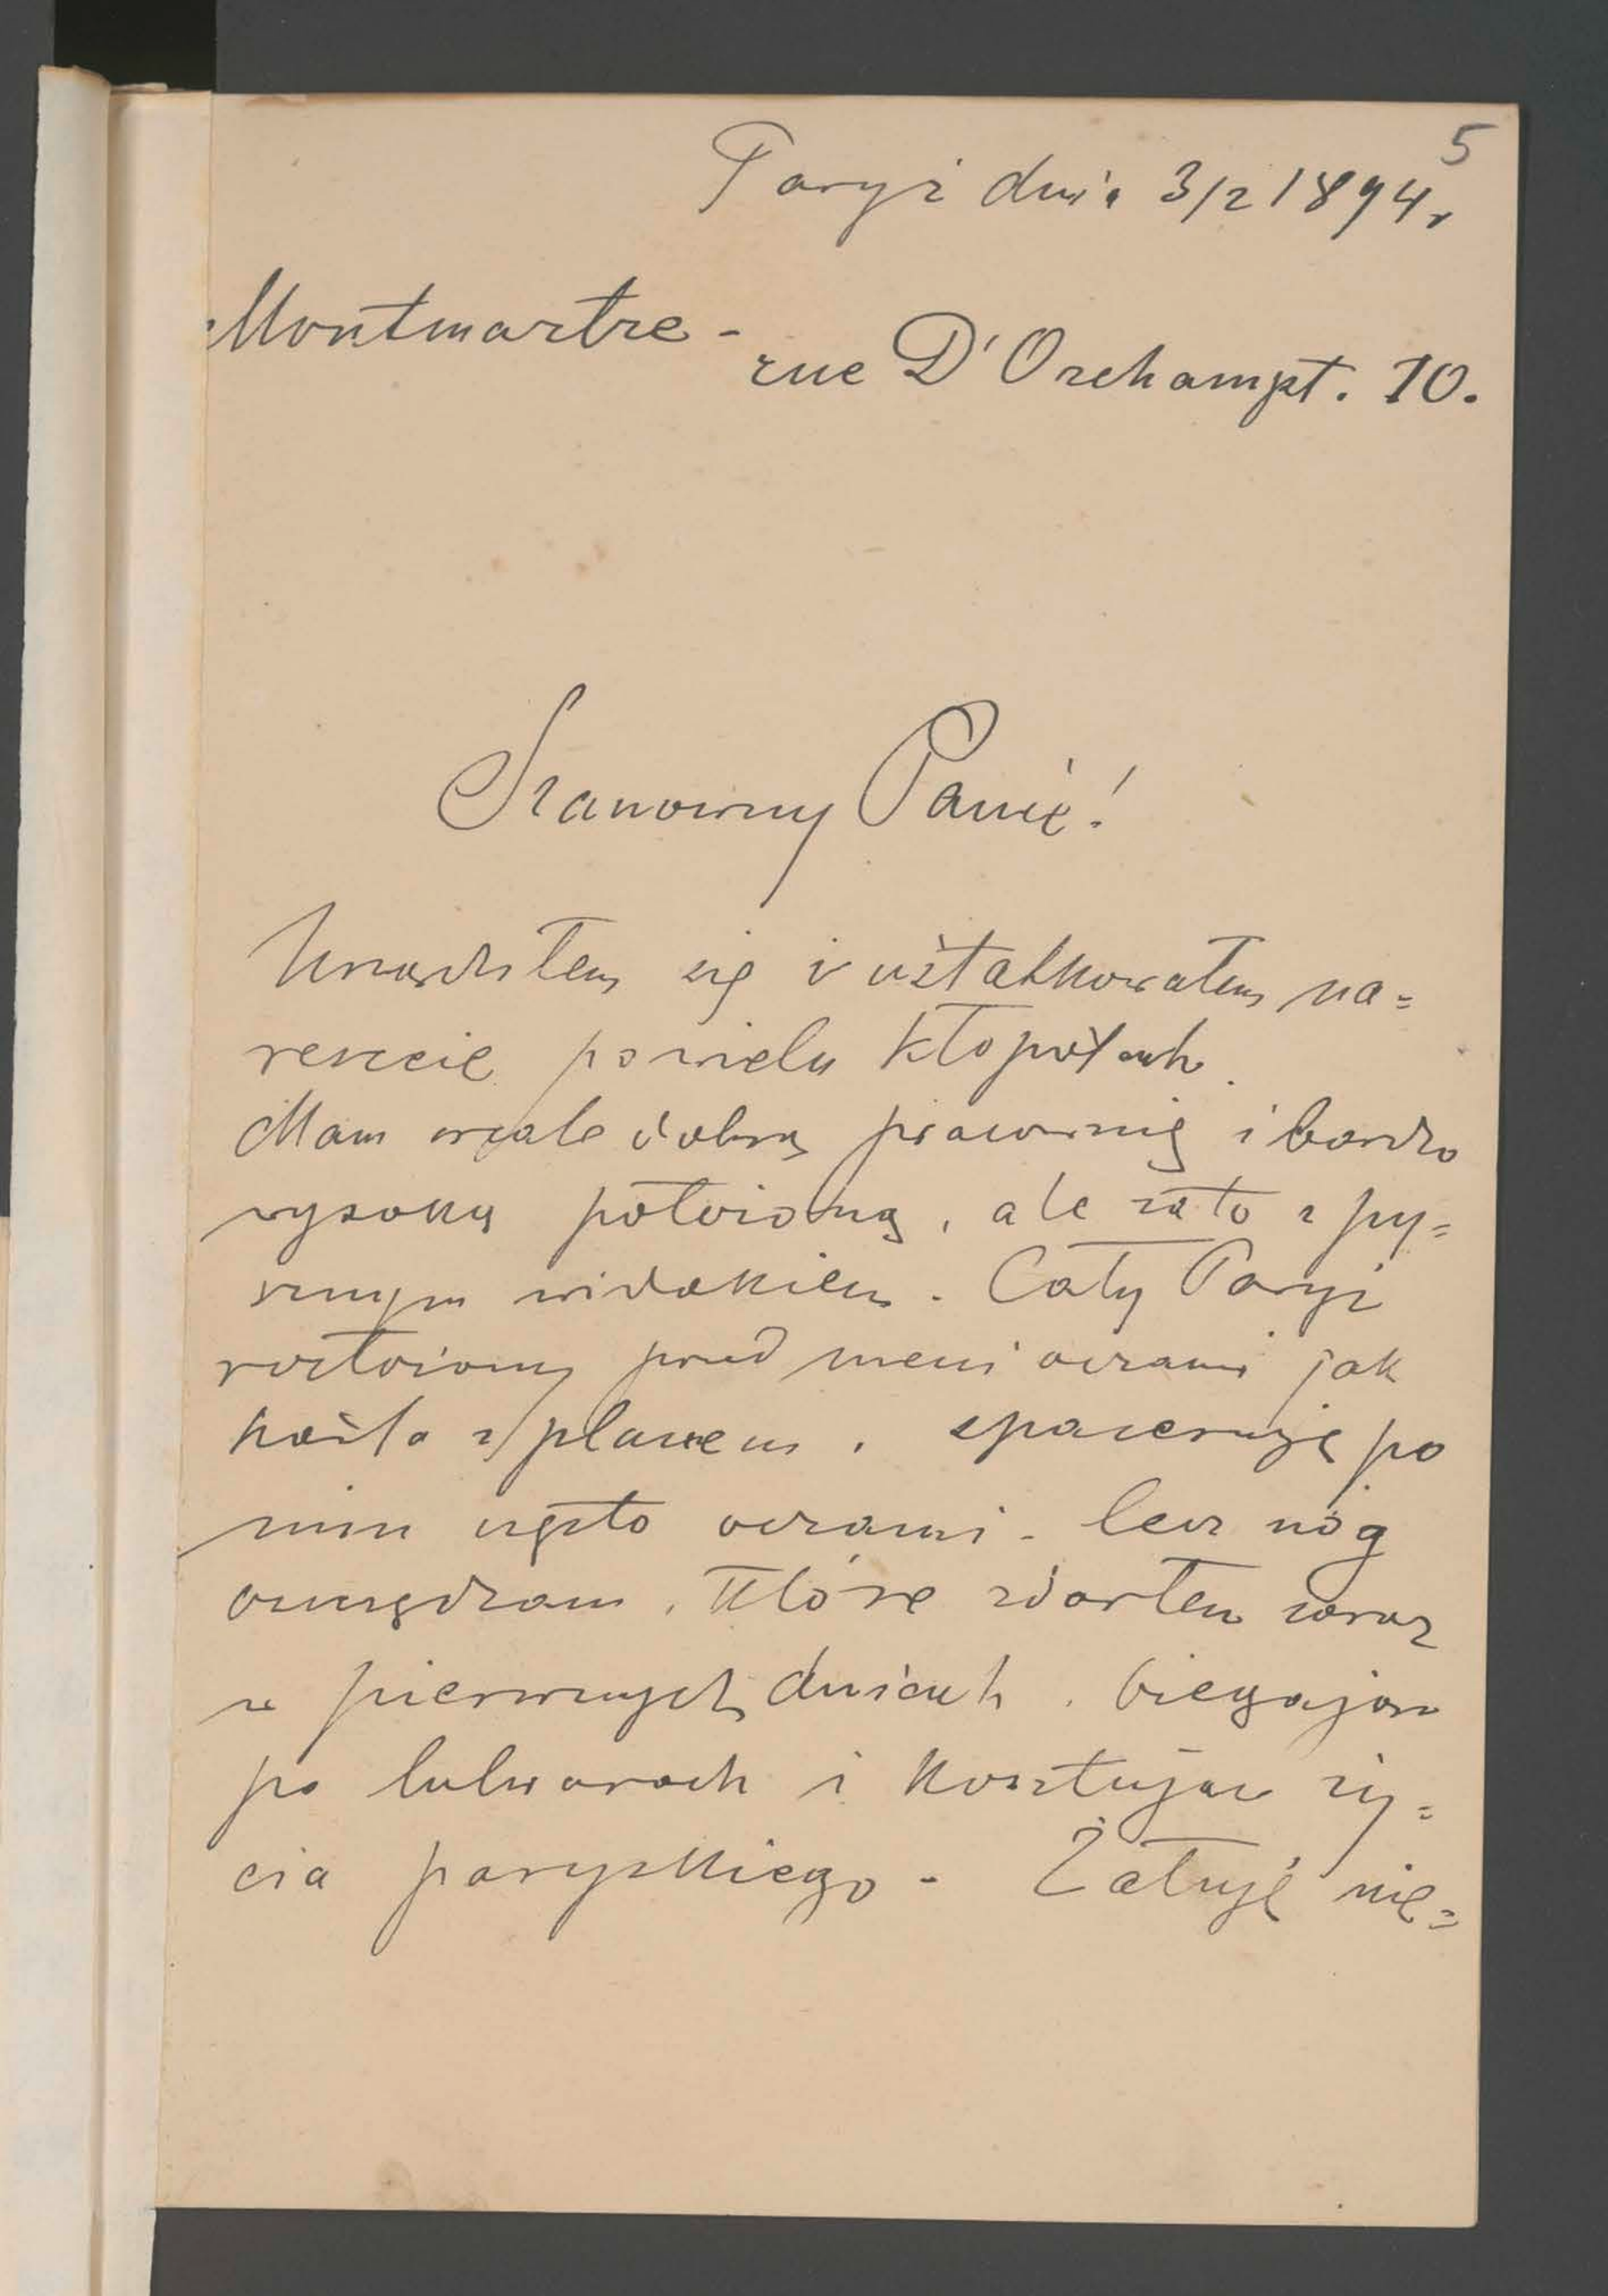 5
Paryż dnia 3/2 1894 r
Montmartre -
rue D'Orchampt. 10.
Szanowny Panie!
Urządziłem się i ustatkowałem na=
reszcie po wielu kłopotach.
Mam wcale dobrą pracownię i bardzo
wysoką położoną, ale za to z py=
sznym widokiem. Cały Paryż
rozłożony pred memi oczami jak
hasło z planem, spaceruję po
nim często oczami - lecz nóg
oszczędzam, które zdarłem zaraz
w pierwszych dniach, biegając
po bulwarach i kosztując ży=
cia paryzkiego - Żałuję nie=